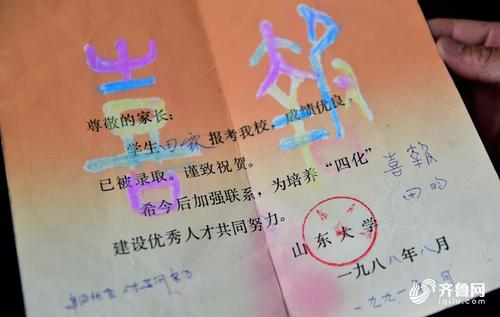 喜報
尊敬的家长：
学生田霖报考我校，成绩优良，
已被录取。谨致祝贺。
希今后加强联系，为培养“四化”
建设优秀人才共同努力。
山东大学
一九八八年八月
喜報
田
一九九一年
齐鲁网
iqilu.com